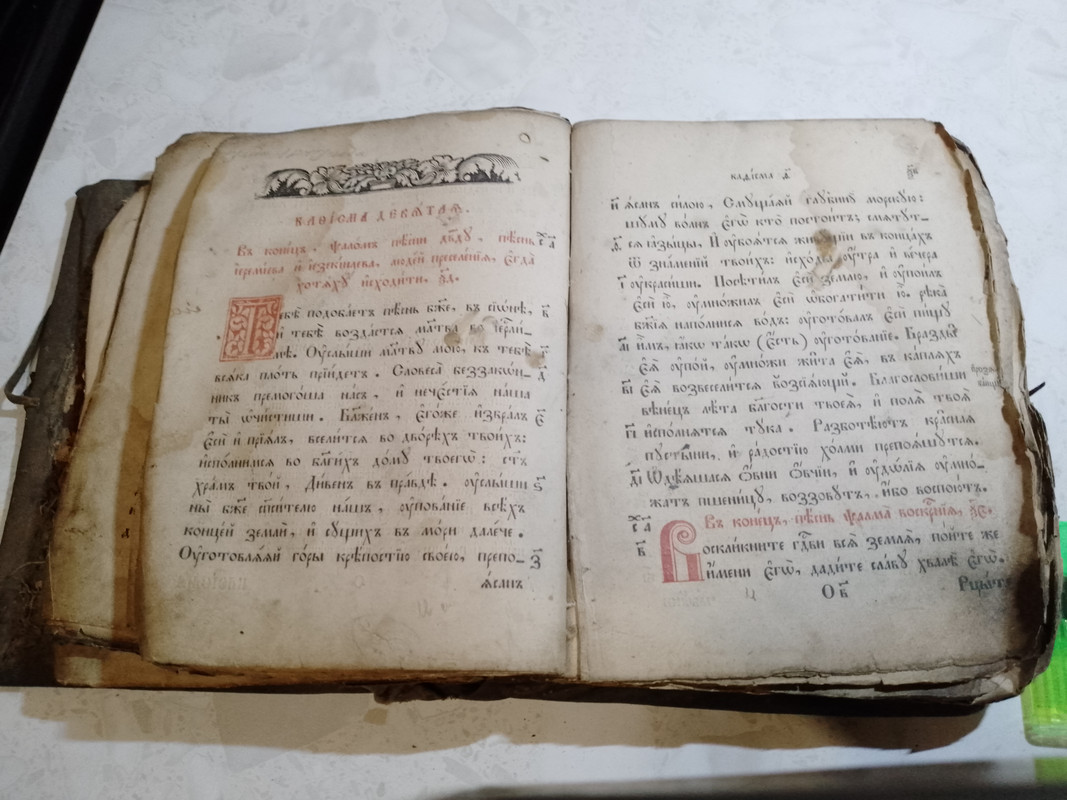 каѳі́сма девѧ́таѧ.
Въ коне́цъ, ѱало́мъ пѣ́сни дв҃ду, пѣ́снь
і҆еремі́ева и҆ і҆езекі́илева, люде́й преселе́нїѧ, є҆гда̀
хотѧ́ху и҆сходи́ти, ѯ҃д.
Тебѣ̀ подоба́етъ пѣ́снь бж҃е, въ сїѡ́нѣ, в҃
и҆ тебѣ̀ возда́стсѧ мл҃тва во і҆ерⷭ҇ли́-
мѣ. Оу҆слы́ши мл҃тву мою̀, къ тебѣ̀ г҃
всѧ́ка пло́ть прїи́детъ. Словеса̀ беззако́н- д҃
никъ премого́ша на́съ, и҆ нече́стїѧ на́ша
ты̀ ѡ҆чи́стиши. Бл҃же́нъ, є҆го́же и҆збра́лъ є҃
є҆сѝ и҆ прїѧ́лъ, всели́тсѧ во дво́рѣхъ твои́хъ:
и҆спо́лнимсѧ во бл҃ги́хъ до́му твоегѡ̀: ст҃ъ
хра́мъ тво́й, Ди́венъ въ пра́вдѣ. оу҆слы́ши ѕ҃
ны̀ бж҃е сп҃си́телю на́шъ, оу҆пова́нїе всѣ́хъ
конце́й землѝ, и҆ су́щихъ въ мо́ри дале́че.
Оу҆готовлѧ́ѧй го́ры крѣ́постїю свое́ю, препо- з҃
ѧ́санъ
каѳі́сма ѳ҃
и҃ ѧ҆́санъ си́лою, Смуща́ѧй глубину̀ морску́ю:
шу́му во́лнъ є҆гѡ̀ кто̀ постои́тъ; смѧту́т-
ѳ҃ сѧ ꙗ҆зы́цы, И҆ оу҆боѧ́тсѧ живу́щїи въ конца́хъ
ѿ зна́менїй твои́хъ: и҆схо́ды оу҆́тра и҆ ве́чера
і҃ оу҆краси́ши. Посѣти́лъ є҆сѝ зе́млю, и҆ оу҆пои́лъ
є҆сѝ ю҆̀, оу҆мно́жилъ є҆сѝ ѡ҆богати́ти ю҆̀. рѣка̀
бж҃їѧ напо́лнисѧ во́дъ: оу҆гото́валъ є҆сѝ пи́щу
а҃і и҆̀мъ, ꙗ҆́кѡ та́кѡ (є҆́сть) оу҆гото́ванїе. Бразды̑
є҆ѧ̀ оу҆по́й, оу҆мно́жи жи́та є҆ѧ̀, въ ка́плѧхъ
в҃і є҆ѧ̀ возвесели́тсѧ возсїѧ́ющи. Благослови́ши
вѣне́цъ лѣ́та бл҃гости твоеѧ̀, и҆ полѧ̀ твоѧ̑
г҃і и҆спо́лнѧтсѧ ту́ка. Разботѣ́ютъ кра̑снаѧ
пусты́ни, и҆ ра́достїю хо́лми препоѧ́шутсѧ.
д҃і Ѡ҆дѣ́ѧшасѧ ѻ҆́вни ѻ҆́вчїи, и҆ оу҆дѡ́лїѧ оу҆мно́-
жатъ пшени́цу, воззову́тъ, и҆́бо воспою́тъ.
Въ коне́цъ, пѣ́снь ѱалма̀ воскрⷭ҇нїѧ, ѯ҃є.
Воскли́кните гдⷭ҇ви всѧ̀ землѧ̀, по́йте же
в҃ и҆́мени є҆гѡ̀, дади́те сла́ву хвалѣ̀ є҆гѡ̀.
О҃в Рцы́те